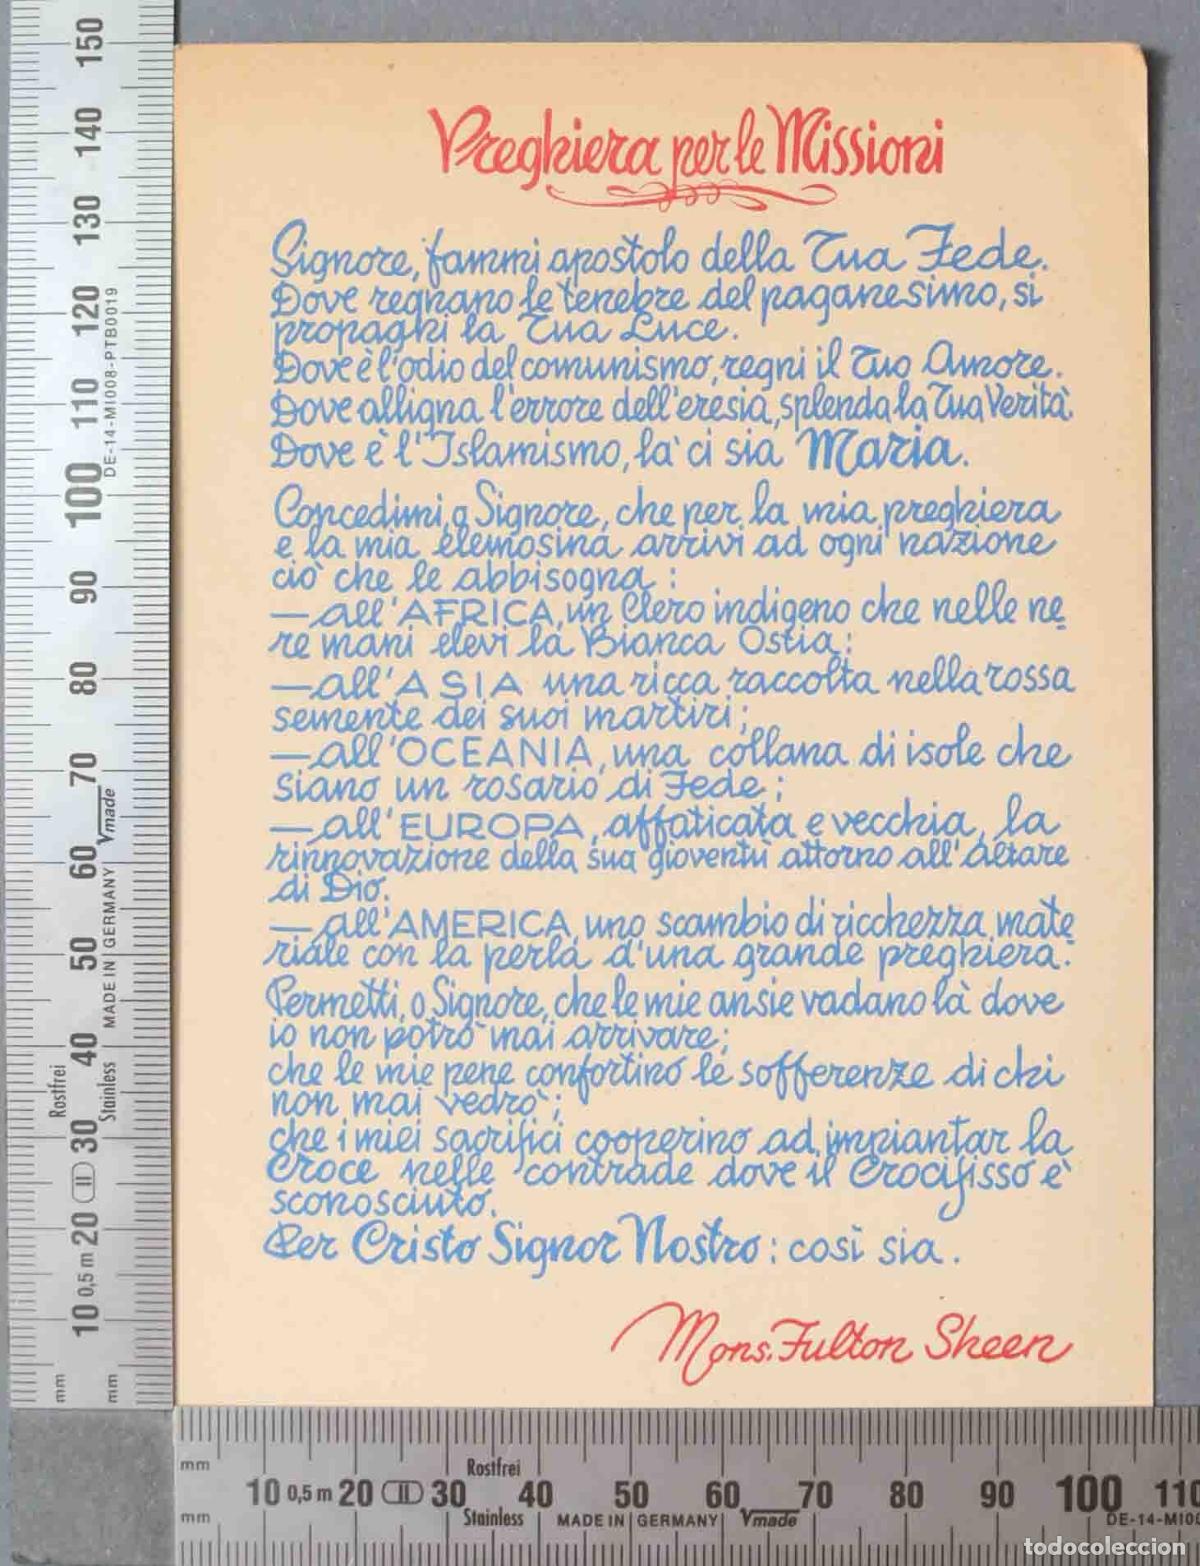 Preghiera per le Missioni
Signore, fammi apostolo della Tua Fede.
Dove regnano le tenebre del paganesimo, si
propaghi la Tua Luce.
Dove è l'odio del comunismo, regni il Tuo Amore.
Dove alligna l'errore dell'eresia, splenda la Tua Verità
Dove è l'Islamismo, la' ci sia Maria.
Concedimi, o Signore, che per la mia preghiera
e la mia elemosina arrivi ad ogni nazione
ciò che le abbisogna:
— all'AFRICA, un Clero indigeno che nelle ne
re mani elevi la Bianca Ostia;
— all'ASIA una ricca raccolta nella rossa
semente dei suoi martiri;
— all'OCEANIA, una collana di isole che
siano un rosario di Fede;
— all'EUROPA, affaticata e vecchia, la
rinnovazione della sua gioventù attorno all'Altare
di Dio.
— all'AMERICA, uno scambio di ricchezza mate
riale con la perla d'una grande preghiera.
Permetti, o Signore, che le mie ansie vadano là dove
io non potrò mai arrivare;
che le mie pene confortino le sofferenze di chi
non mai vedrò;
che i miei sacrifici cooperino ad impiantar la
Croce nelle contrade dove il Crocifisso è
sconosciuto.
Per Cristo Signor Nostro: così sia.
Mons. Fulton Sheen
150
140
130
120
110
100
90
80
70
60
50
40
30
20
10
0,5 m
mm
mm
Rostfrei
Stainless
MADE IN GERMANY
Vmade
DE-14-MI008-PTB0019
mm
mm
10 0,5 m 20 30 40 50 60 70 80 90 100 110
Rostfrei
Stainless
MADE IN GERMANY
Vmade
DE-14-MI00
todocoleccion